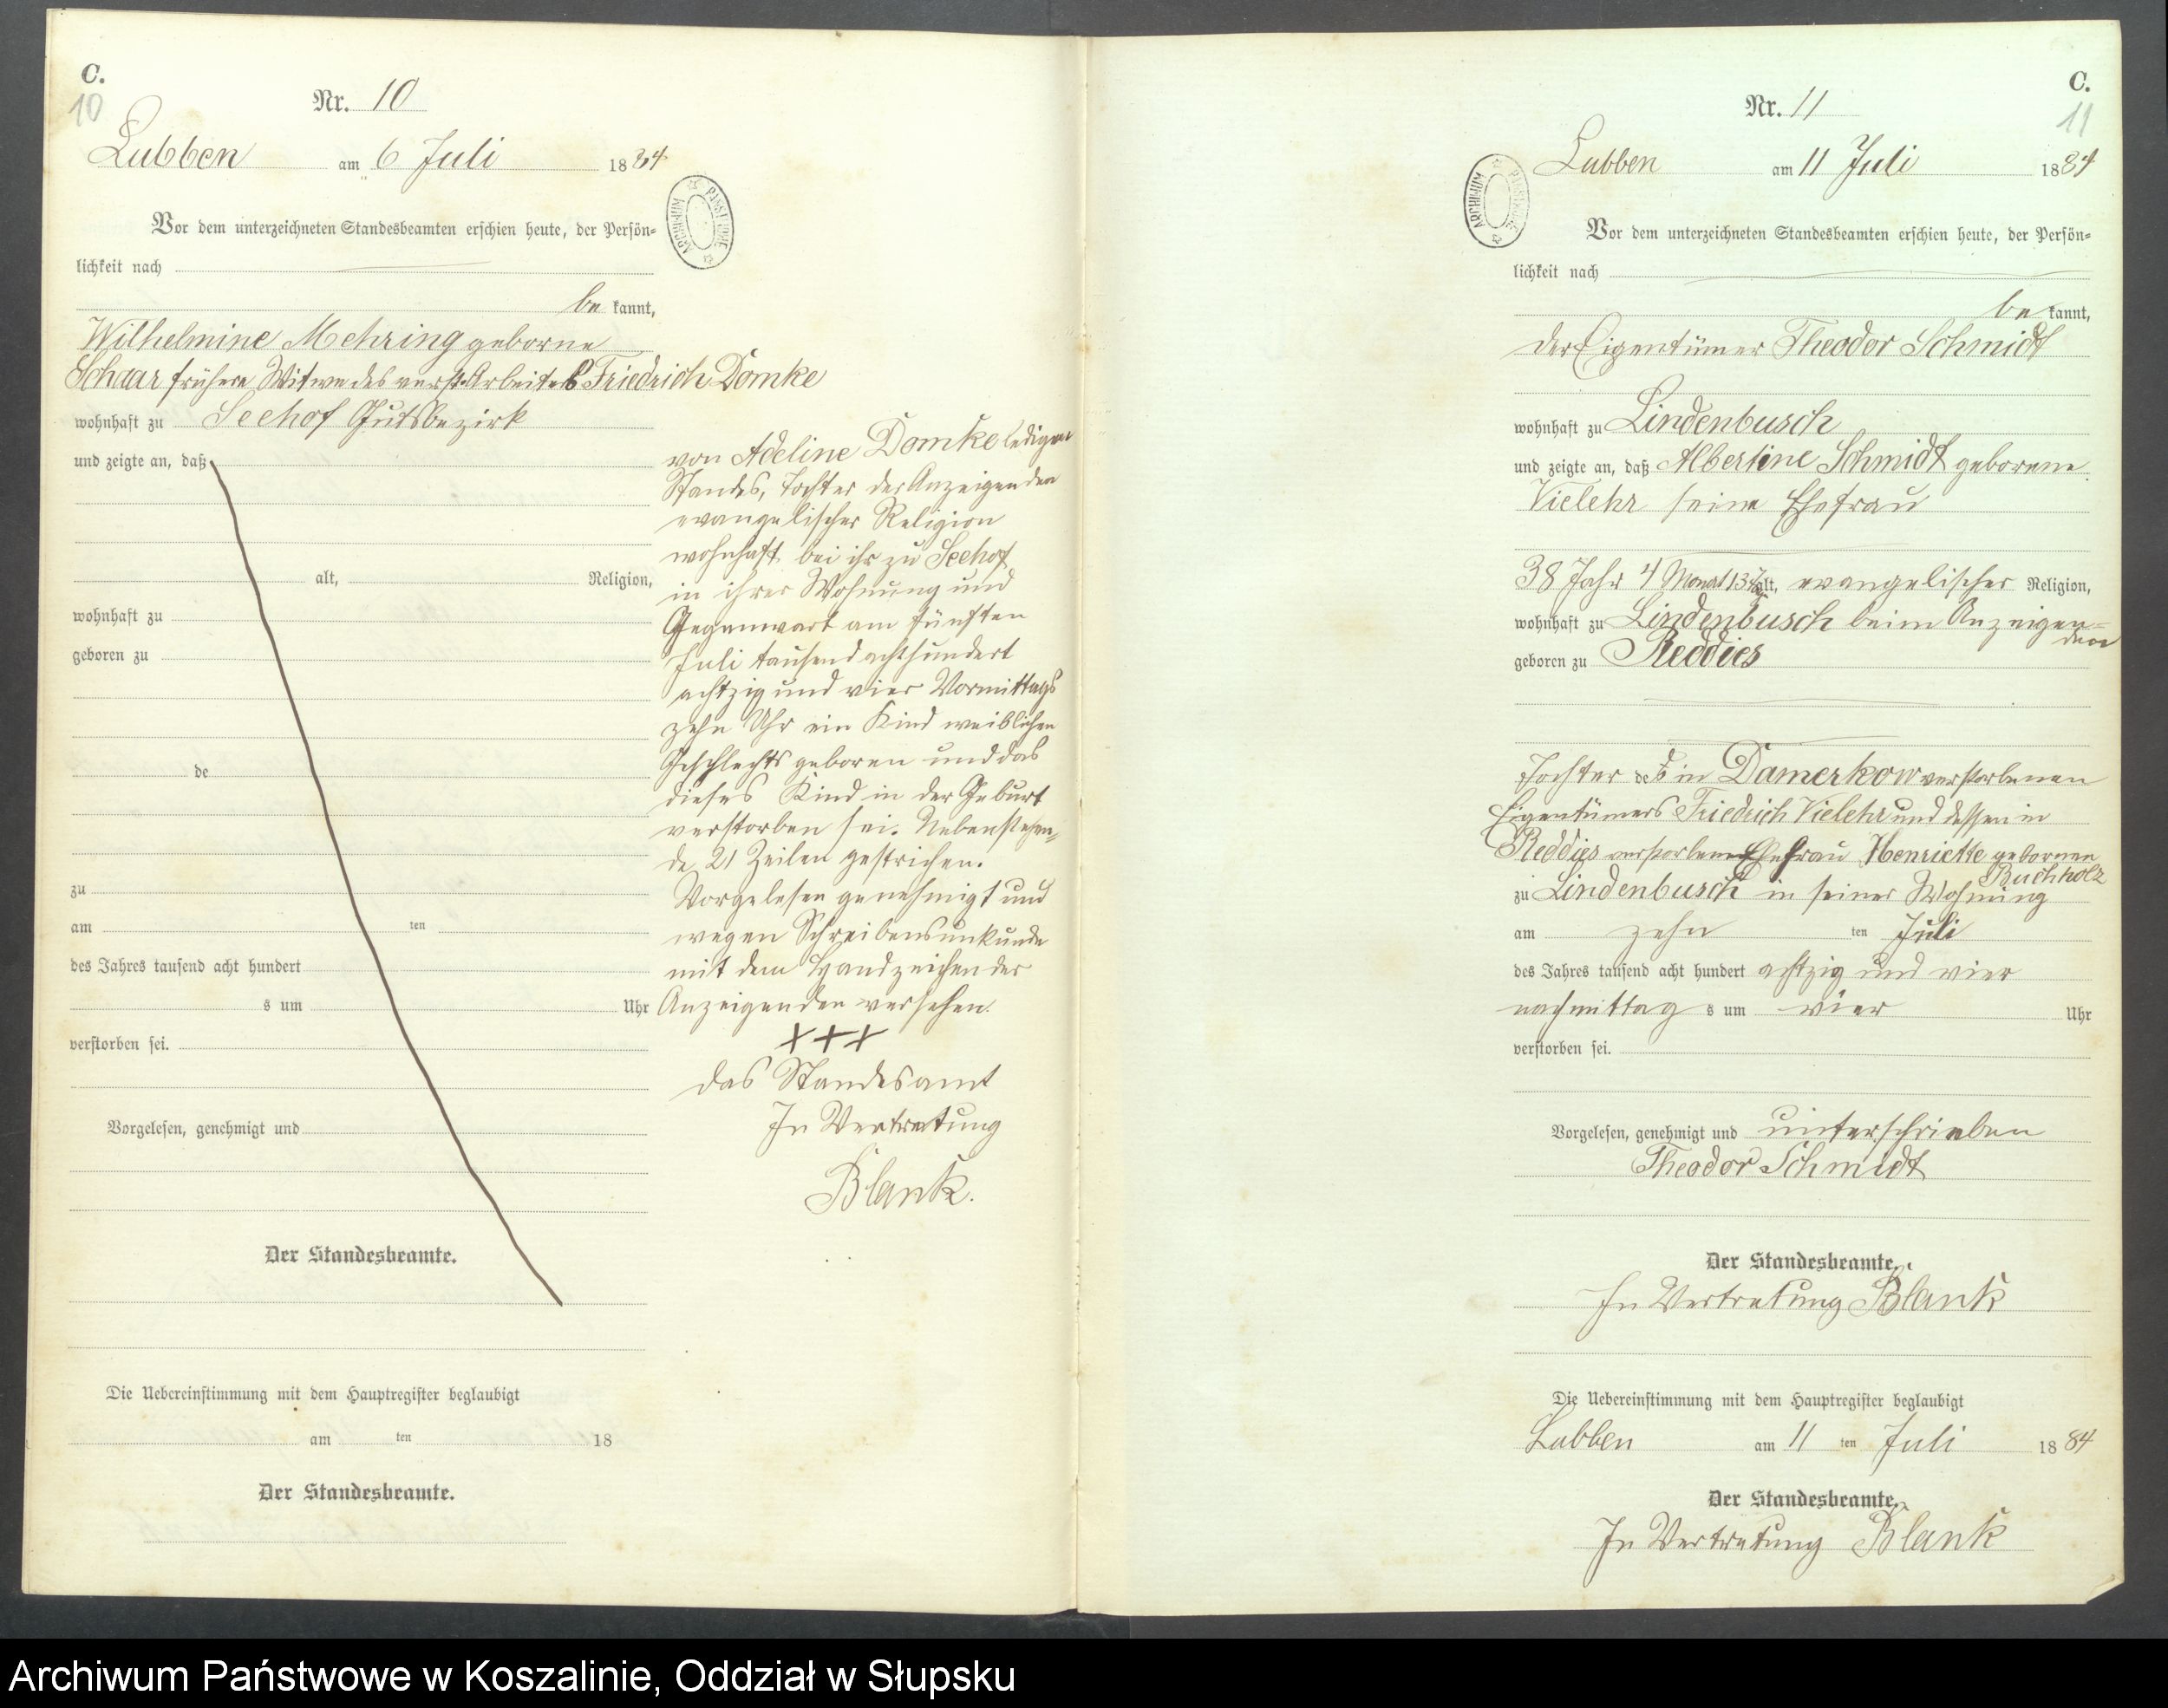 C.
10
Nr. 10
Lubben am 6 Juli 1884
Vor dem unterzeichneten Standesbeamten erschien heute, der Persön=
lichkeit nach
be kannt,
Wilhelmine Mehring geborne
Schaar frühere Witwe des verst. Arbeiters Friedrich Domke
wohnhaft zu Seehof Gutsbezirk
und zeigte an, daß
alt, Religion,
wohnhaft zu
geboren zu
de
zu
am ten
des Jahres tausend acht hundert
s um Uhr
verstorben sei.
Vorgelesen, genehmigt und
Der Standesbeamte.
Die Uebereinstimmung mit dem Hauptregister beglaubigt
am ten 18
Der Standesbeamte.
ARCHIWUM PAŃSTWOWE
von Adeline Domke ledigen
Standes, Tochter der Anzeigenden
evangelischer Religion
wohnhaft bei ihr zu Seehof
in ihrer Wohnung und
Gegenwart am fünften
Juli tausend achthundert
achtzig und vier Vormittags
zehn Uhr ein Kind weiblichen
Geschlechts geboren und das
dieses Kind in der Geburt
verstorben sei. Nebenstehen=
de 21 Zeilen gestrichen.
Vorgelesen genehmigt und
wegen Schreibensunkunde
mit dem Handzeichen der
Anzeigenden versehen.
+++
Das Standesamt
In Vertretung
Blank.
C.
11
Nr. 11
ARCHIWUM PAŃSTWOWE
Lubben am 11 Juli 1884
Vor dem unterzeichneten Standesbeamten erschien heute, der Persön=
lichkeit nach
be kannt,
der Eigentümer Theodor Schmidt
wohnhaft zu Lindenbusch
und zeigte an, daß Albertine Schmidt geborene
Vielehr seine Ehefrau
38 Jahr 4 Monat 13 Tag alt, evangelischer Religion,
wohnhaft zu Lindenbusch beim Anzeigen=
den
geboren zu Reddies
Tochter des in Damerkow verstorbenen
Eigentümers Friedrich Vielehr und dessen in
Reddies verstorbenen Ehefrau Henriette gebornen
Buchholz
zu Lindenbusch in seiner Wohnung
am zehn ten Juli
des Jahres tausend acht hundert achtzig und vier
nachmittag s um vier Uhr
verstorben sei.
Vorgelesen, genehmigt und unterschrieben
Theodor Schmidt
Der Standesbeamte.
In Vertretung Blank
Die Uebereinstimmung mit dem Hauptregister beglaubigt
Lubben am 11 ten Juli 1884
Der Standesbeamte.
In Vertretung Blank
Archiwum Państwowe w Koszalinie, Oddział w Słupsku